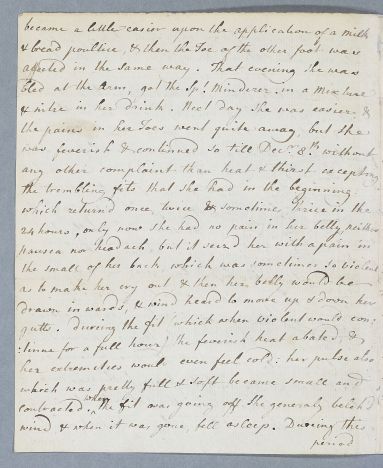 became a little easier upon the application of a milk
& bread poultice, & then the Toe of the other foot was
affected in the same way. That evening she was
bled at the Arm, got the Sp.t Minderer. in a Mixture
& nitre in her drink. Next day she was easier &
the pains in her Toes went quite away, but she
was feverish & continued so till Dec.r 8.th without
any other complaint than heat & thirst excepting
the trembling fits that she had in the beginning
which return'd once, twice & sometimes thrice in the
24 hours, only now she had no pain in her belly neither
nausea nor headach, but it seiz'd her with a pain in
the small of her back which was sometimes so violent
as to make her cry out & then her belly would be
drawn inwards, & wind heard to move up & down her
gutts. During the fit (which when violent would con-
tinue for a full hour) the feverish heat abated, &
her extremities would even feel cold: her pulse also
which was pretty full & soft became small and
contracted. when the fit was going off she generally belch'd
wind & when it was gone, fell asleep. During this
period